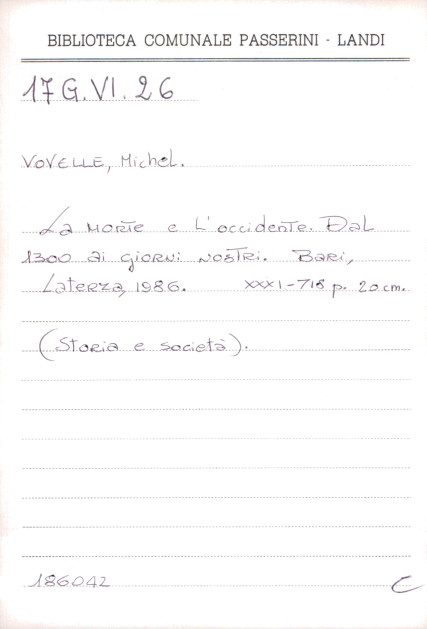 BIBLIOTECA COMUNALE PASSERINI - LANDI
17 G.VI.26
VOVELLE, Michel.
La morte e l'occidente. Dal
1300 ai giorni nostri. Bari,
Laterza, 1986. XXXI-715 p. 20 cm.
(Storia e società).
186042 C